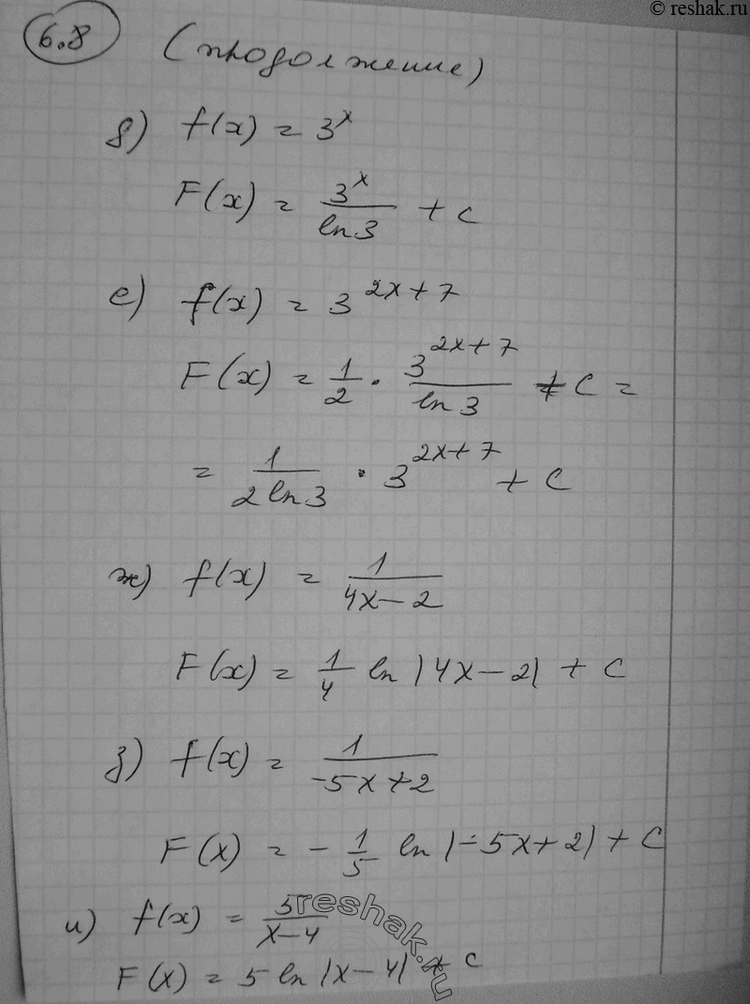 © reshak.ru
6.8 (продолжение)
д) f(x) = 3^x
F(x) = 3^x / ln 3 + c
е) f(x) = 3^(2x+7)
F(x) = 1/2 · 3^(2x+7) / ln 3 + C =
= 1 / (2 ln 3) · 3^(2x+7) + C
ж) f(x) = 1 / (4x-2)
F(x) = 1/4 ln |4x-2| + C
з) f(x) = 1 / (-5x+2)
F(x) = - 1/5 ln |-5x+2| + C
и) f(x) = 5 / (x-4)
F(x) = 5 ln |x-4| + C
reshak.ru